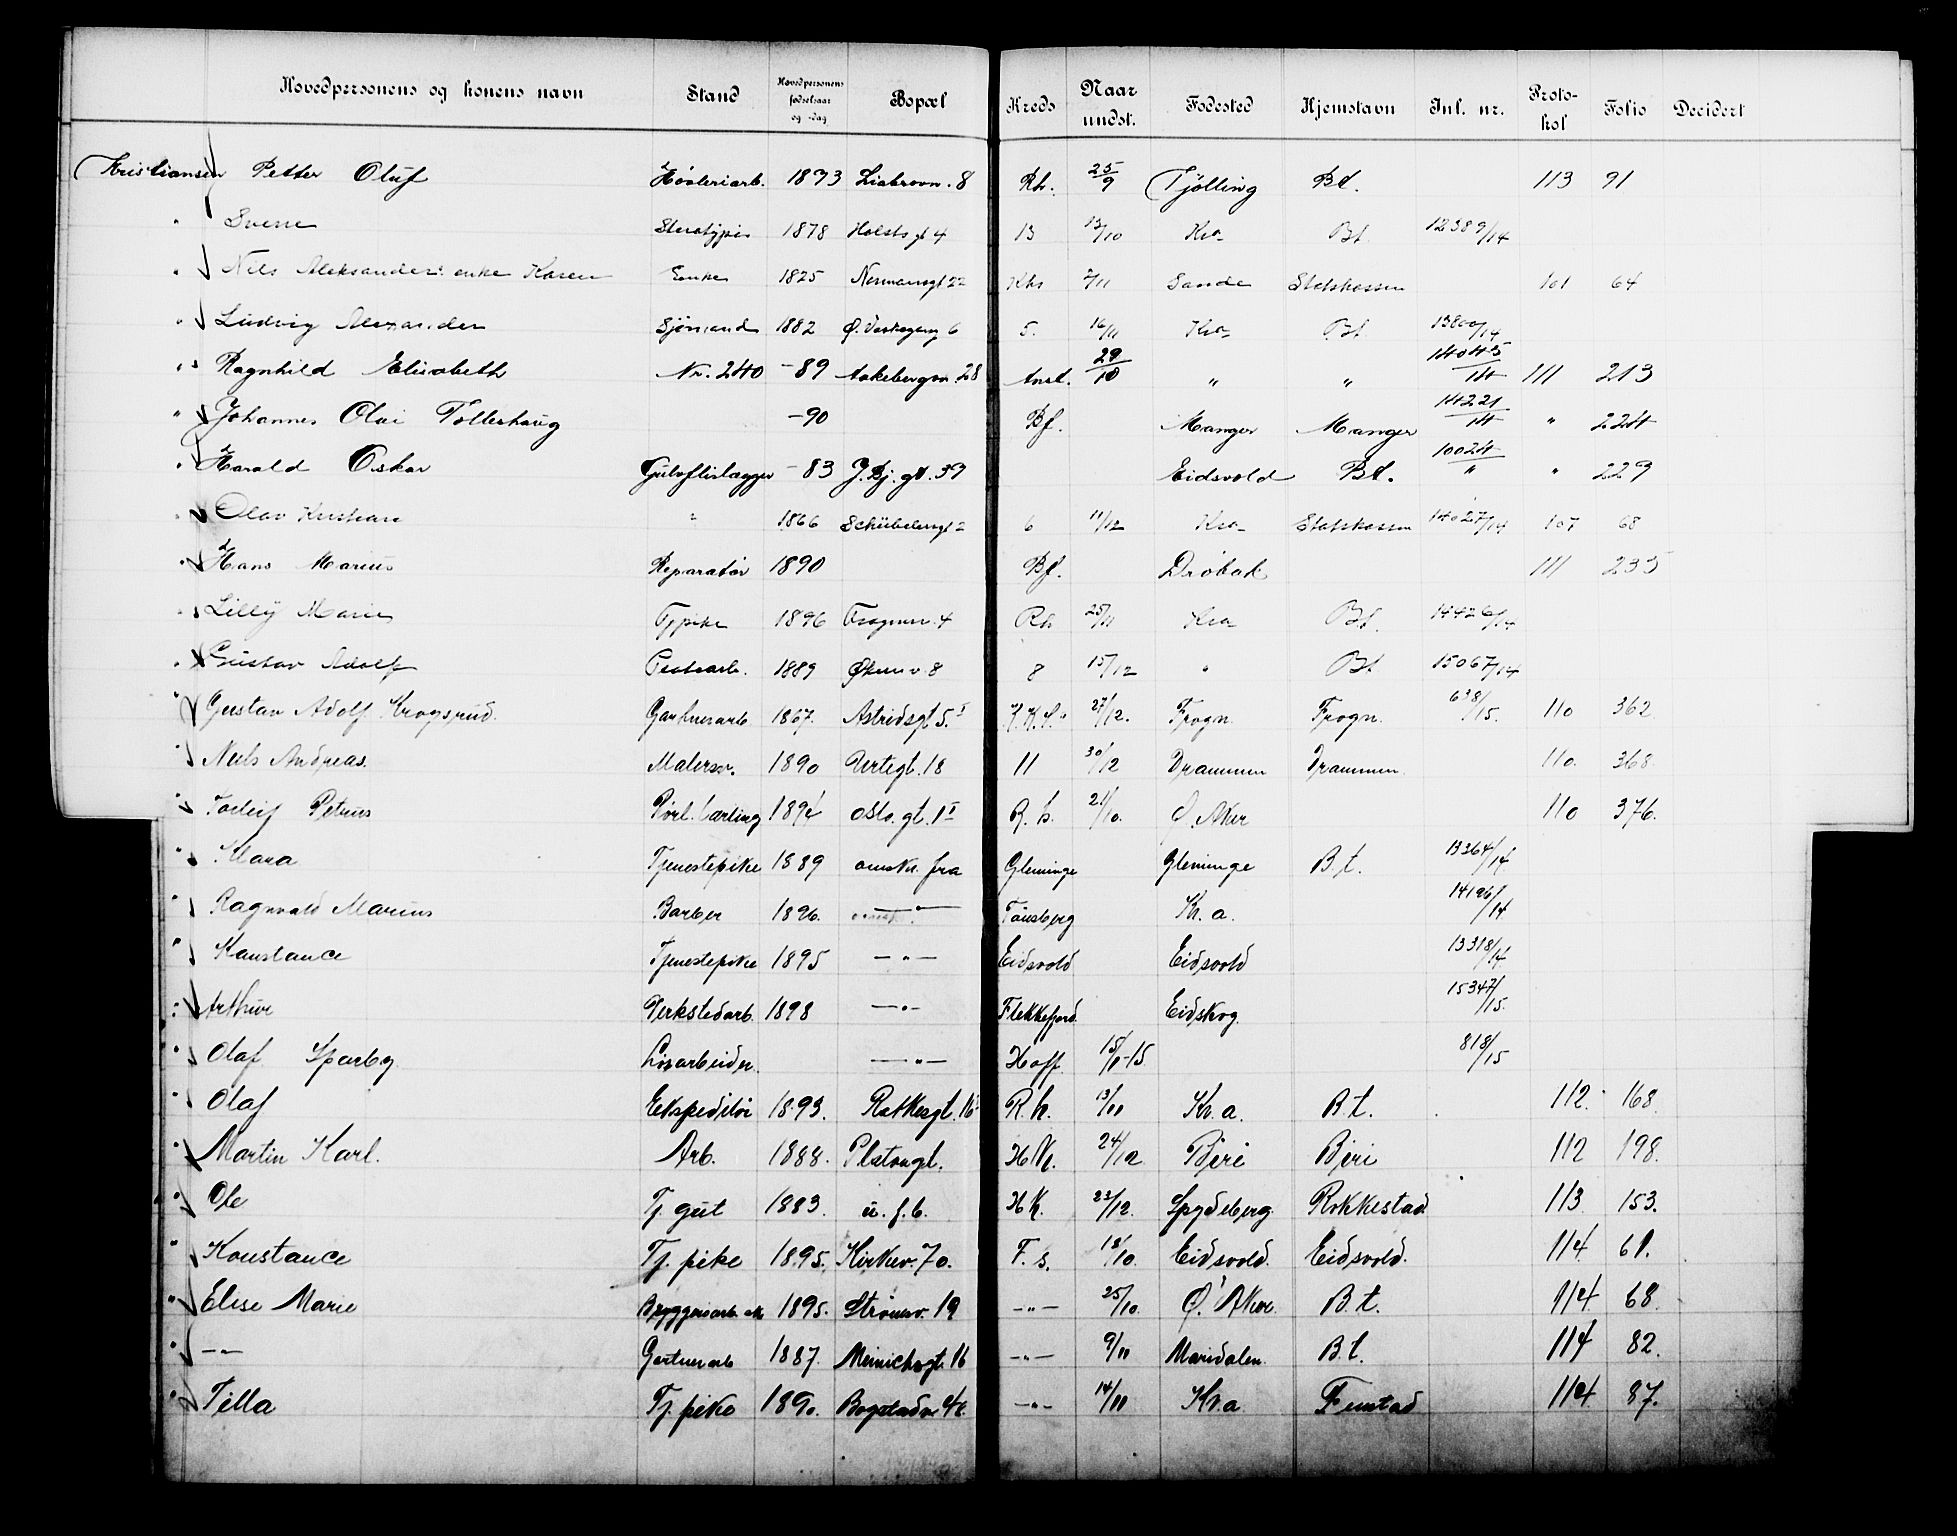 Hovedpersonens og konens navn Stand Hovedpersonens fødselsaar og -dag Bopæl Kreds Naar undst. Fødested Hjemstavn Inl. nr. Protokol Folio Decidert
Kristiansen Petter Oluf Høvleriarb. 1873 Liabrovn. 8 Rh. 25/9 Tjölling Bt. 113 91
" Sverre 1878 Holsts gt 4 13 13/10 Kra Bt 12389/14
" Nils Aleksander: enke Karen Enke 1825 Normannsgt 22 Khs 2/11 Sande Statskassen 101 64
" Ludvig Alexander Sjømand 1882 Ø. 6 5. 16/11 Kra Bt 13800/14
" Ragnhild Elisabeth Nr. 240 -89 Aakebergvn. 28 Anst. 29/10 " " 14045/14 111 213
" Johannes Olai Tollershaug -90 Bf. Manger Manger 14221/14 " 224
" Harald Oskar Gulvflislægger -83 J. Bj. gt. 39 Eidsvold Bt. 10024/" " 229
" Olav Kristian " 1866 Schübelersgt 2 6 11/12 Kra Statskassen 14027/14 107 68
" Hans Marius Reparatør 1890 Bf. Drøbak 111 235
" Lilly Marie Tjpike 1896 Frognerv. 4 Rh 25/11 Kra Bt. 14426/14
" Gustav Adolf 1889 Økernv 8 8 15/12 " Bt 15067/14
" Gustav Adolf Krogsrud. Garbnerarb 1867. Astridsgt. 5. I K. K. S. 27/12. Frogn. Frogn. 638/15. 110 362
" Niels Andreas. Malersv. 1890 Vertsgt. 18 11 30/12 Drammen Drammen. 110. 368.
" Torleif Petrus Rørl. lærling 1894 Oslo. gt. 1 I R. h. 21/10. Ø. Aker 110 376.
" Klara Tjenestepike 1889 ønsk. fra Glemminge Gleminge B. t. 13264/14
" Ragnvald Marius Barber 1896. —"— Tønsberg Kr. a. 14196/14
" Konstance Tjenestepike 1895 —"— Eidsvold Eidsvold 13318/14
" Arthur Verkstedarb. 1898 —"— Flekkefjord. Eidskog. 15347/15.
" Olaf Sparby Løsarbeider. —"— Hoff. 15/1-15 818/15
" Olaf Ekspeditør 1893. Ratkesgt. 16 R. h. 13/11 Kr. a. B. t. 112. 168.
" Martin Karl. Arb. 1888. Platougt. H K. 24/12 Biri Biri 112 198.
" Ole Tj. gut 1883. u. f. b. H K. 23/12. Spydeberg. Rakkestad 113 153.
" Konstance Tj. pike 1895. Kirkev. 70. F. s. 18/10. Eidsvold. Eidsvold. 114 61.
" Elise Marie Bryggeriarb. 1895. Strømsv. 19 —"— 25/10. Ø. Aker. B. t. 114 68.
" —"— Gartnerarb 1887. Meinichsgt. 16 —"— 9/11 Maridalen. B. t. 114 82.
" Tilla Tj. pike 1890. Bogstadv. 46 —"— 14/11 Kr. a Finstad 114 87.